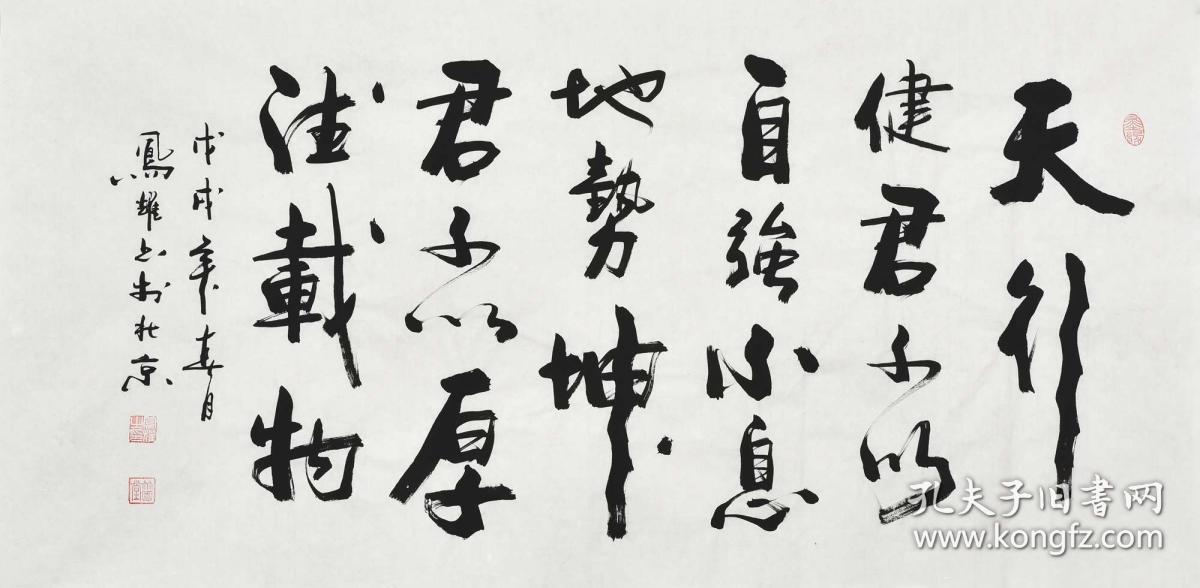 天行
健君子以
自強不息
地勢坤
君子以厚
德載物
戊戌年春月
鳳耀書於北京
孔夫子旧书网
www.kongfz.com